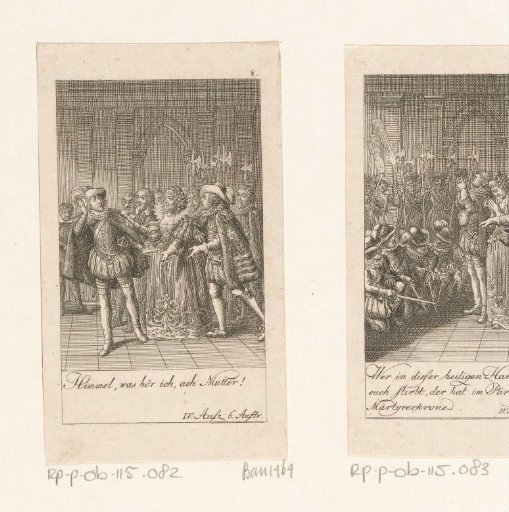 8.
Himmel, was hör ich, ach Mutter!
IV. Aufz. 6. Auftr.
RP-P-OB-115.082
Bau1969
Wer in dieser heiligen
euch stirbt, der hat im
Märtyrerkrone.
RP-P-OB-115.083